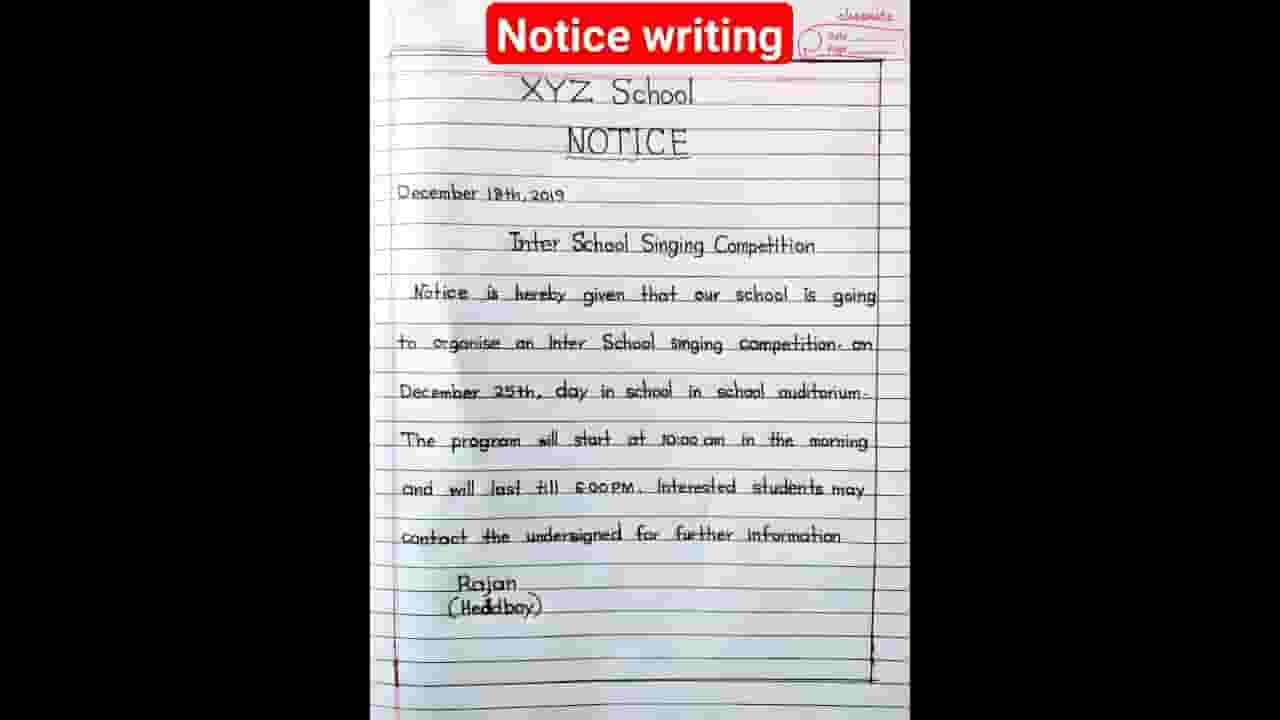 Notice writing
classmate
Date
Page
XYZ School
NOTICE
December 18th, 2019
Inter School Singing Competition
Notice is hereby given that our school is going
to organise an Inter School singing competition. on
December 25th, day in school in school auditorium.
The program will start at 10:00 am in the morning
and will last till 5:00 PM. Interested students may
contact the undersigned for further information
Rajan
(Headboy)